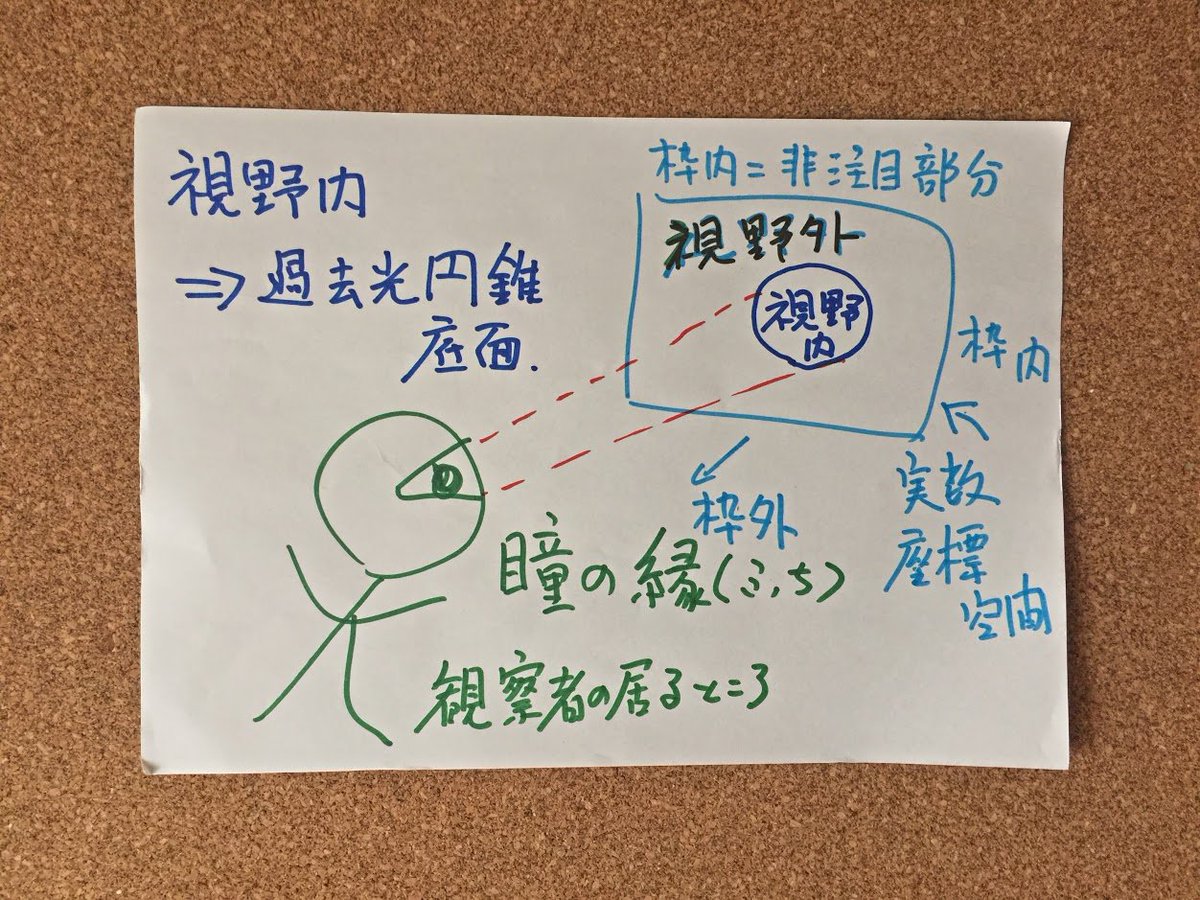 視野内
⇒過去光円錐
底面.
枠内=非注目部分
視野外
視野
内
枠内
実数
座標
空間
枠外
瞳の縁(ふち)
観察者の居るところ